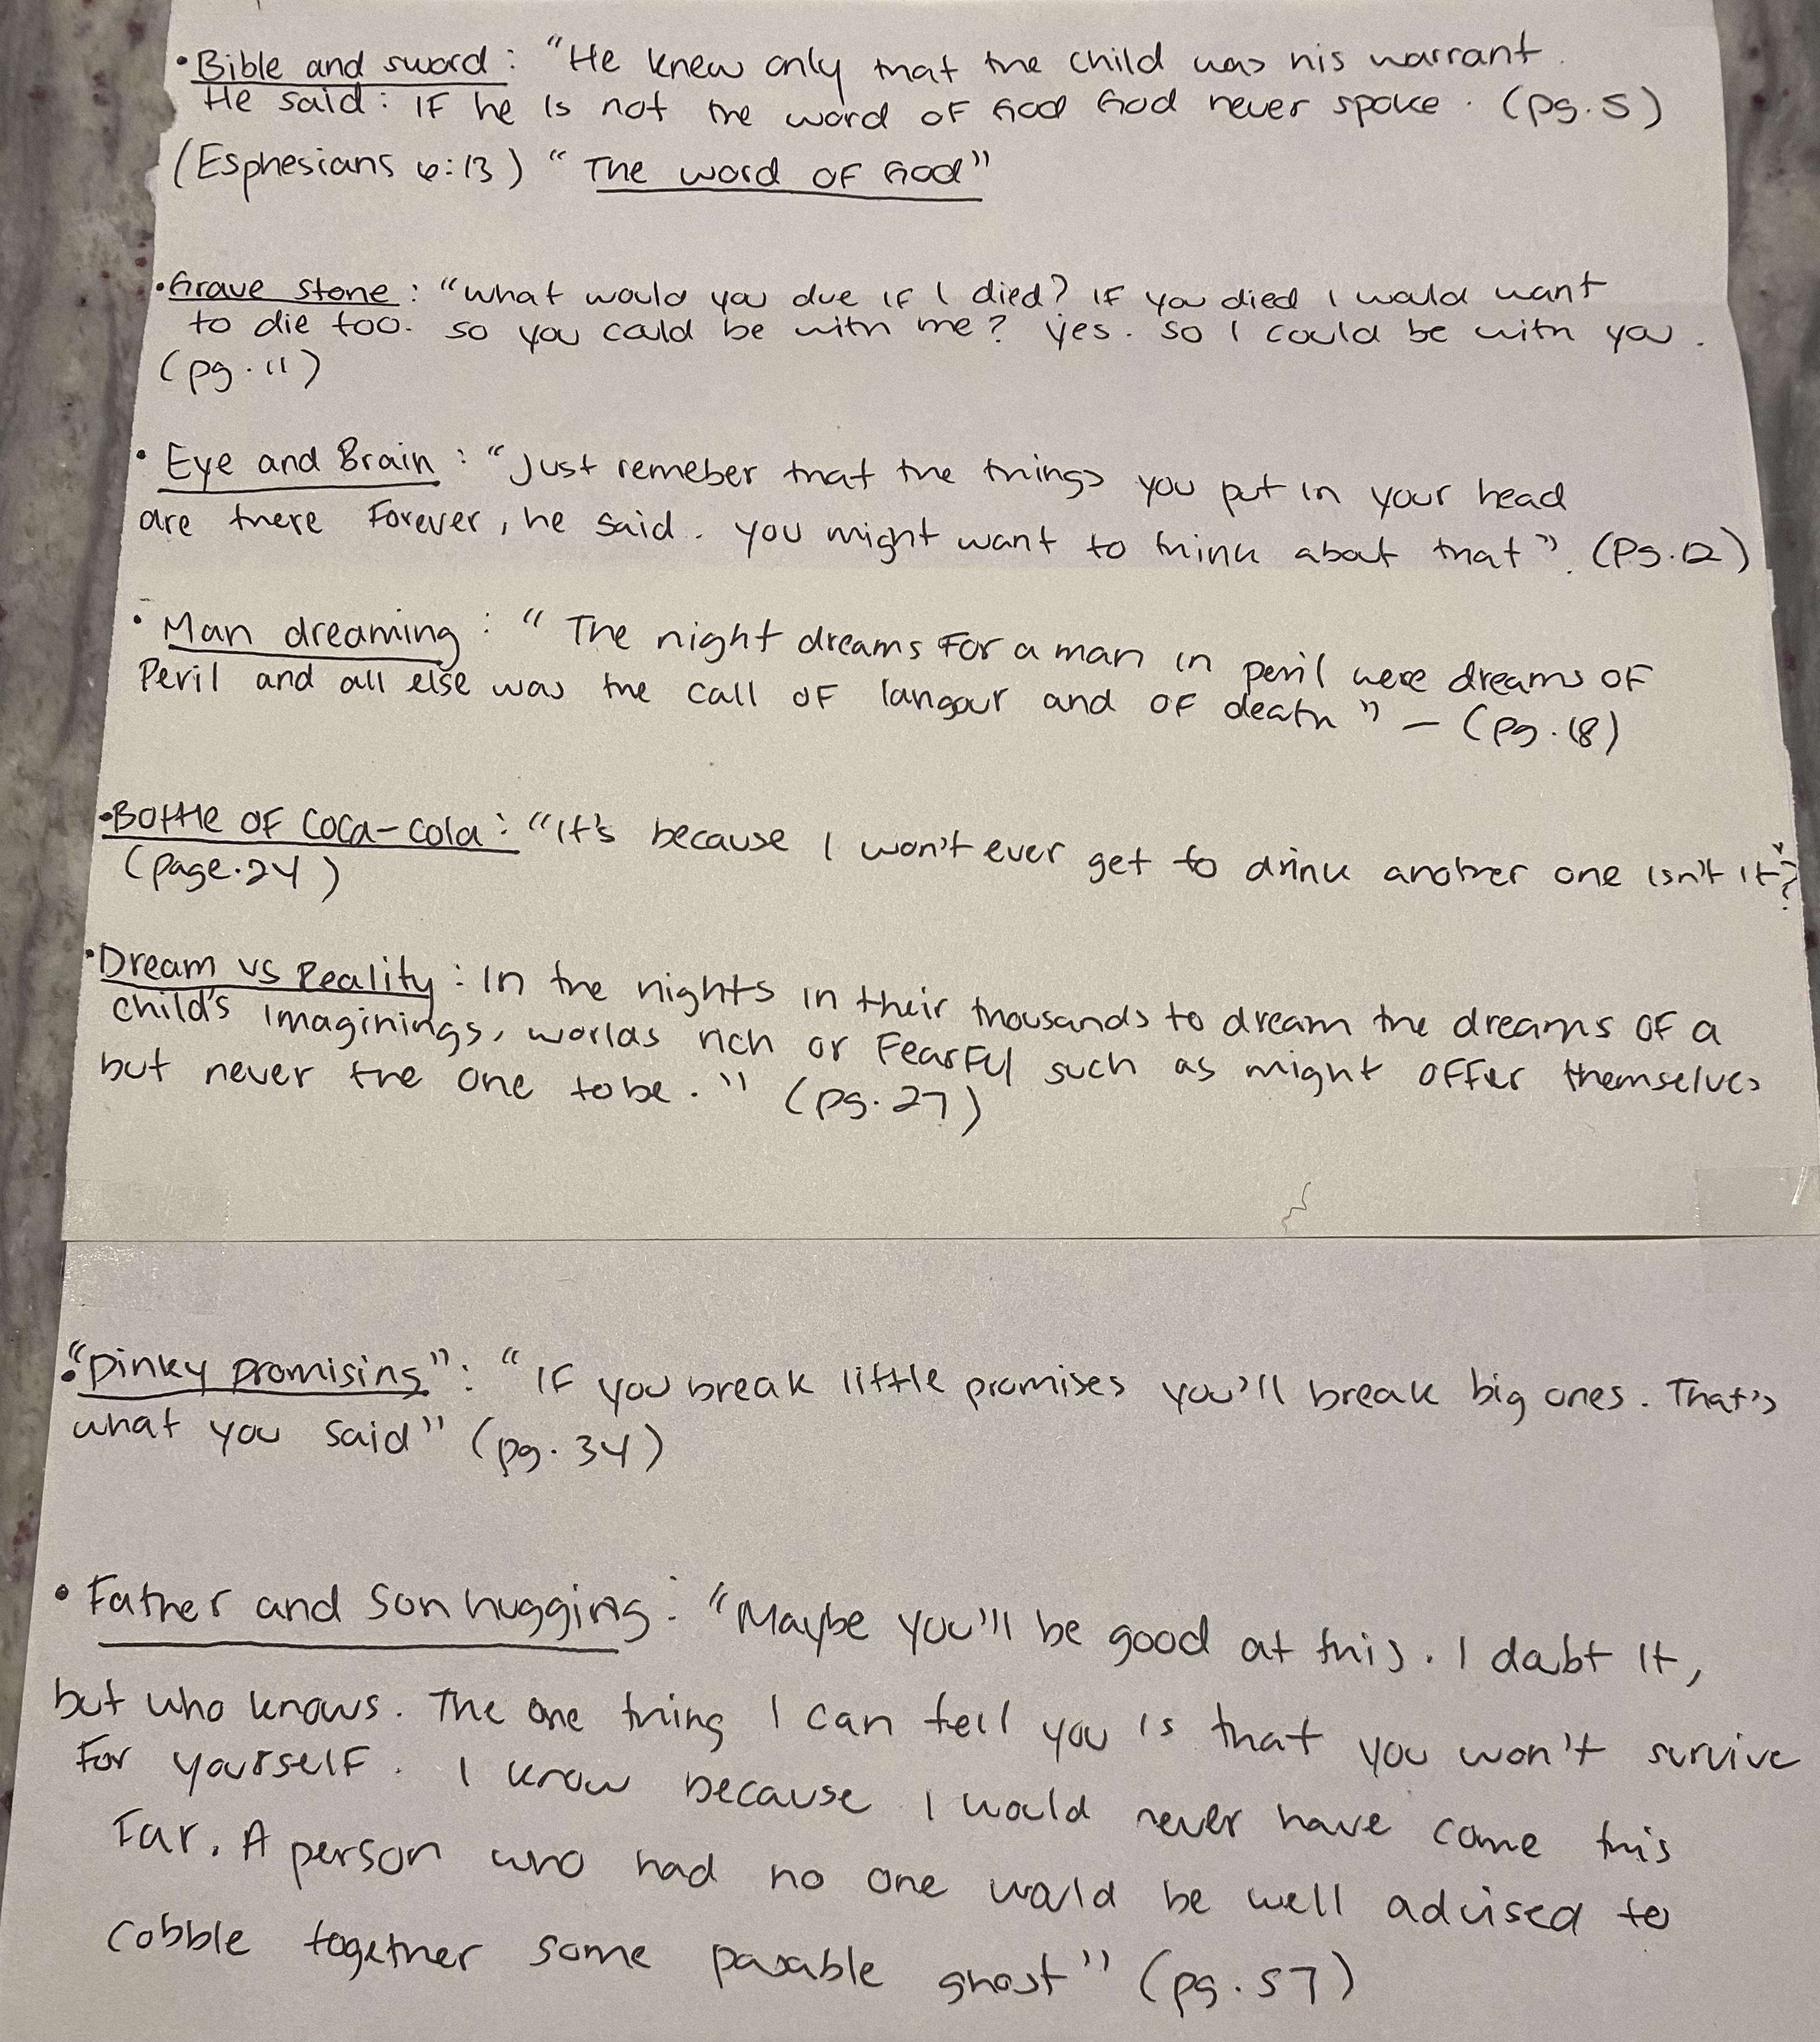 • Bible and sword : "He knew only that the child was his warrant.
He said: IF he is not the word of God God never spoke. (pg.5)
(Esphesians 6:13) "The word of God"
• Grave stone : "What would you due if I died? If you died I would want
to die too. so you could be with me? yes. so I could be with you.
(pg.11)
• Eye and Brain : "Just remeber that the things you put in your head
are there Forever, he said. you might want to think about that". (Pg.12)
• Man dreaming : "The night dreams For a man in peril were dreams of
Peril and all else was the call of langour and of death" — (pg.18)
• Bottle of Coca-Cola : "It's because I won't ever get to drink another one isn't it?"
(page.24)
• Dream vs Reality : In the nights in their thousands to dream the dreams of a
child's imaginings, worlds rich or Fearful such as might offer themselves
but never the one to be." (pg.27)
• "Pinky promising": "If you break little promises you'll break big ones. That's
what you said" (pg.34)
• Father and Son hugging : "Maybe you'll be good at this. I dobt it,
but who knows. The one thing I can tell you is that you won't survive
For yourself. I know because I would never have come this
Far. A person who had no one would be well advised to
cobble together some pasable ghost" (pg.57)